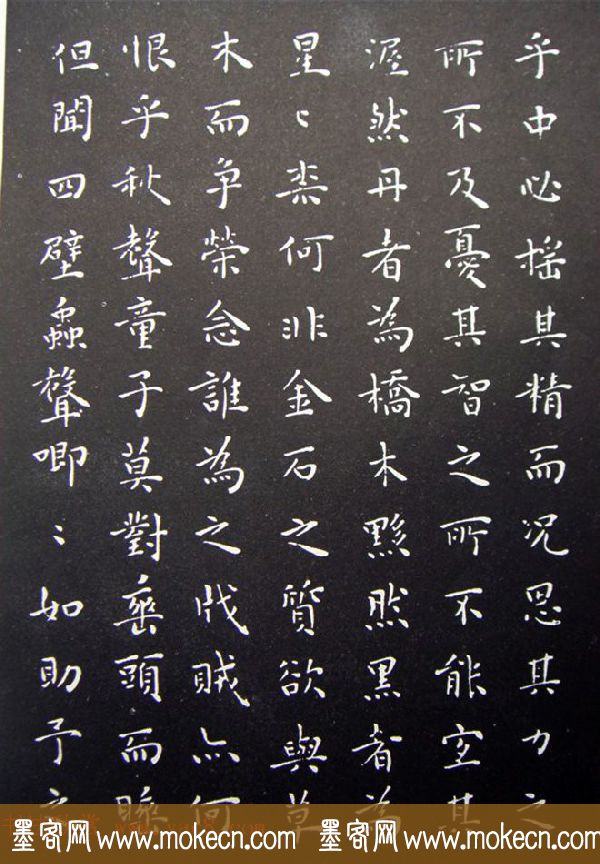 乎中必摇其精而况思其力之
所不及憂其智之所不能宜其
渥然丹者為橋木黟然黑者為
星〻柰何非金石之質欲與草
木而争榮念誰為之戕賊亦何
恨乎秋聲童子莫對垂頭而睡
但聞四壁蟲聲唧〻如助予之
墨客网 www.mokecn.com 墨客网 www.mokecn.com